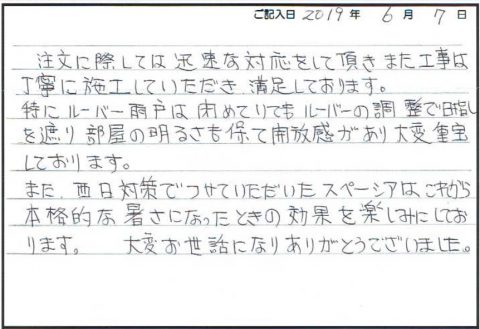 ご記入日 2019年 6月 7日
注文に際しては迅速な対応をして頂きまた工事は
丁寧に施工していただき満足しております。
特にルーバー雨戸は閉めてりてもルーバーの調整で日指し
を遮り部屋の明るさも保て開放感があり大変重宝
しております。
また、西日対策でつけていただいたスペーシアはこれから
本格的な暑さになったときの効果を楽しみにしてお
ります。 大変お世話になりありがとうございました。